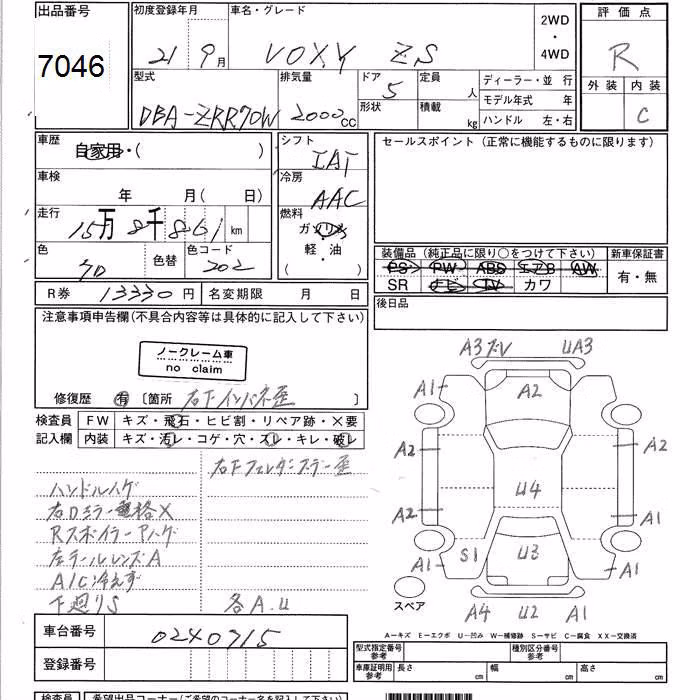 出品番号
7046
初度登録年月
21 9月
車名・グレード
VOXY ZS
2WD
・
4WD
評価点
R
外装 内装
C
型式
DBA-ZRR70W
排気量
2000cc
ドア
5
形状
定員
人
積載
kg
ディーラー・並行
モデル年式 年
ハンドル 左・右
車歴
自家用・( )
シフト
IAT
セールスポイント (正常に機能するものに限ります)
車検
年 月( 日)
冷房
AAC
走行
15万8千861km
燃料
ガソリン
・
軽・油
( )
色
色替
色コード
202
装備品 (純正品に限り○をつけて下さい)
新車保証書
PS PW ABS エアB AW
SR ナビ TV カワ
有・無
R券 13330円
名変期限 月 日
後日品
注意事項申告欄(不具合内容等は具体的に記入して下さい)
ノークレーム車
no claim
修復歴 有 〔箇所 右Fインパネ歪 〕
検査員
記入欄
FW キズ・飛石・ヒビ割・リペア跡・×要
内装 キズ・汚レ・コゲ・穴・スレ・キレ・破レ
右Fフェンダーステー歪
ハンドルハゲ
右Dミラー格×
RスポイラーAハゲ
左テールレンズA
A/C冷えず
下廻りS 各A.U
A3 UA3
A1 A2 A1
A2 A2
U4
A2 A1
S1 U3
A1 A1
スペア
A4 U2 A1
A-キズ E-エクボ U-凹み W-補修跡 S-サビ C-腐食 XX-交換済
車台番号
0240715
登録番号
型式指定番号
参考
種別区分番号
参考
車庫証明用
参考
長さ cm 幅 cm 高さ cm
検査員
希望出品コーナー(ご希望のコーナー名を記入